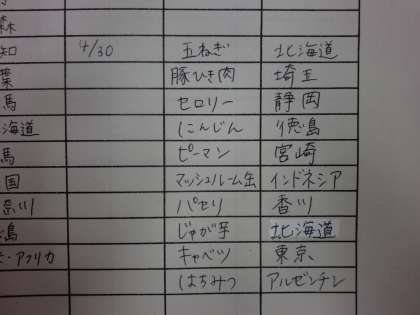 森
知 4/30 玉ねぎ 北海道
葉 豚ひき肉 埼玉
馬 セロリー 静岡
海道 にんじん 徳島
馬 ピーマン 宮崎
国 マッシュルーム缶 インドネシア
奈川 パセリ 香川
島 じゃが芋 北海道
・アフリカ キャベツ 東京
はちみつ アルゼンチン